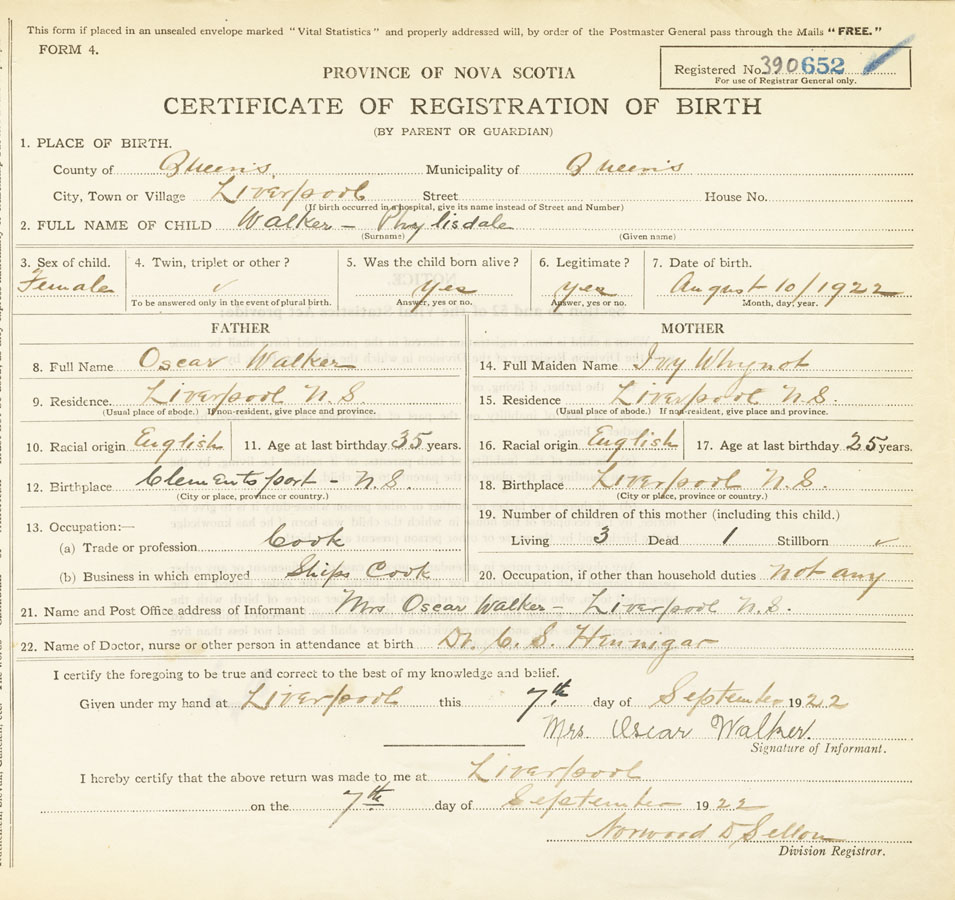 This form if placed in an unsealed envelope marked "Vital Statistics" and properly addressed will, by order of the Postmaster General pass through the Mails "FREE."
FORM 4.
Registered No. 390652
For use of Registrar General only.
PROVINCE OF NOVA SCOTIA
CERTIFICATE OF REGISTRATION OF BIRTH
(BY PARENT OR GUARDIAN)
1. PLACE OF BIRTH.
County of Queens Municipality of Queens
City, Town or Village Liverpool Street House No.
(If birth occurred in a hospital, give its name instead of Street and Number)
2. FULL NAME OF CHILD Walker - Phylisdale
(Surname) (Given name)
3. Sex of child. 4. Twin, triplet or other? 5. Was the child born alive? 6. Legitimate? 7. Date of birth.
Female ✓ yes yes August 10/1922
To be answered only in the event of plural birth. Answer, yes or no. Answer, yes or no. Month, day, year.
FATHER MOTHER
8. Full Name Oscar Walker 14. Full Maiden Name Ivy Whynot
9. Residence. Liverpool N.S 15. Residence Liverpool N.S.
(Usual place of abode.) If non-resident, give place and province. (Usual place of abode.) If non-resident, give place and province.
10. Racial origin English 11. Age at last birthday 35 years. 16. Racial origin English 17. Age at last birthday 25 years.
12. Birthplace Clementsport - N.S. 18. Birthplace Liverpool N.S.
(City or place, province or country.) (City or place, province or country.)
13. Occupation:— 19. Number of children of this mother (including this child.)
(a) Trade or profession Cook Living 3 Dead 1 Stillborn ✓
(b) Business in which employed Ships Cook 20. Occupation, if other than household duties not any
21. Name and Post Office address of Informant Mrs Oscar Walker - Liverpool N.S.
22. Name of Doctor, nurse or other person in attendance at birth Dr. C. S. Hennigar
I certify the foregoing to be true and correct to the best of my knowledge and belief.
Given under my hand at Liverpool this 7th day of September 1922
Mrs. Oscar Walker.
Signature of Informant.
I hereby certify that the above return was made to me at Liverpool
on the 7th day of September 1922
Norwood D Sellon
Division Registrar.